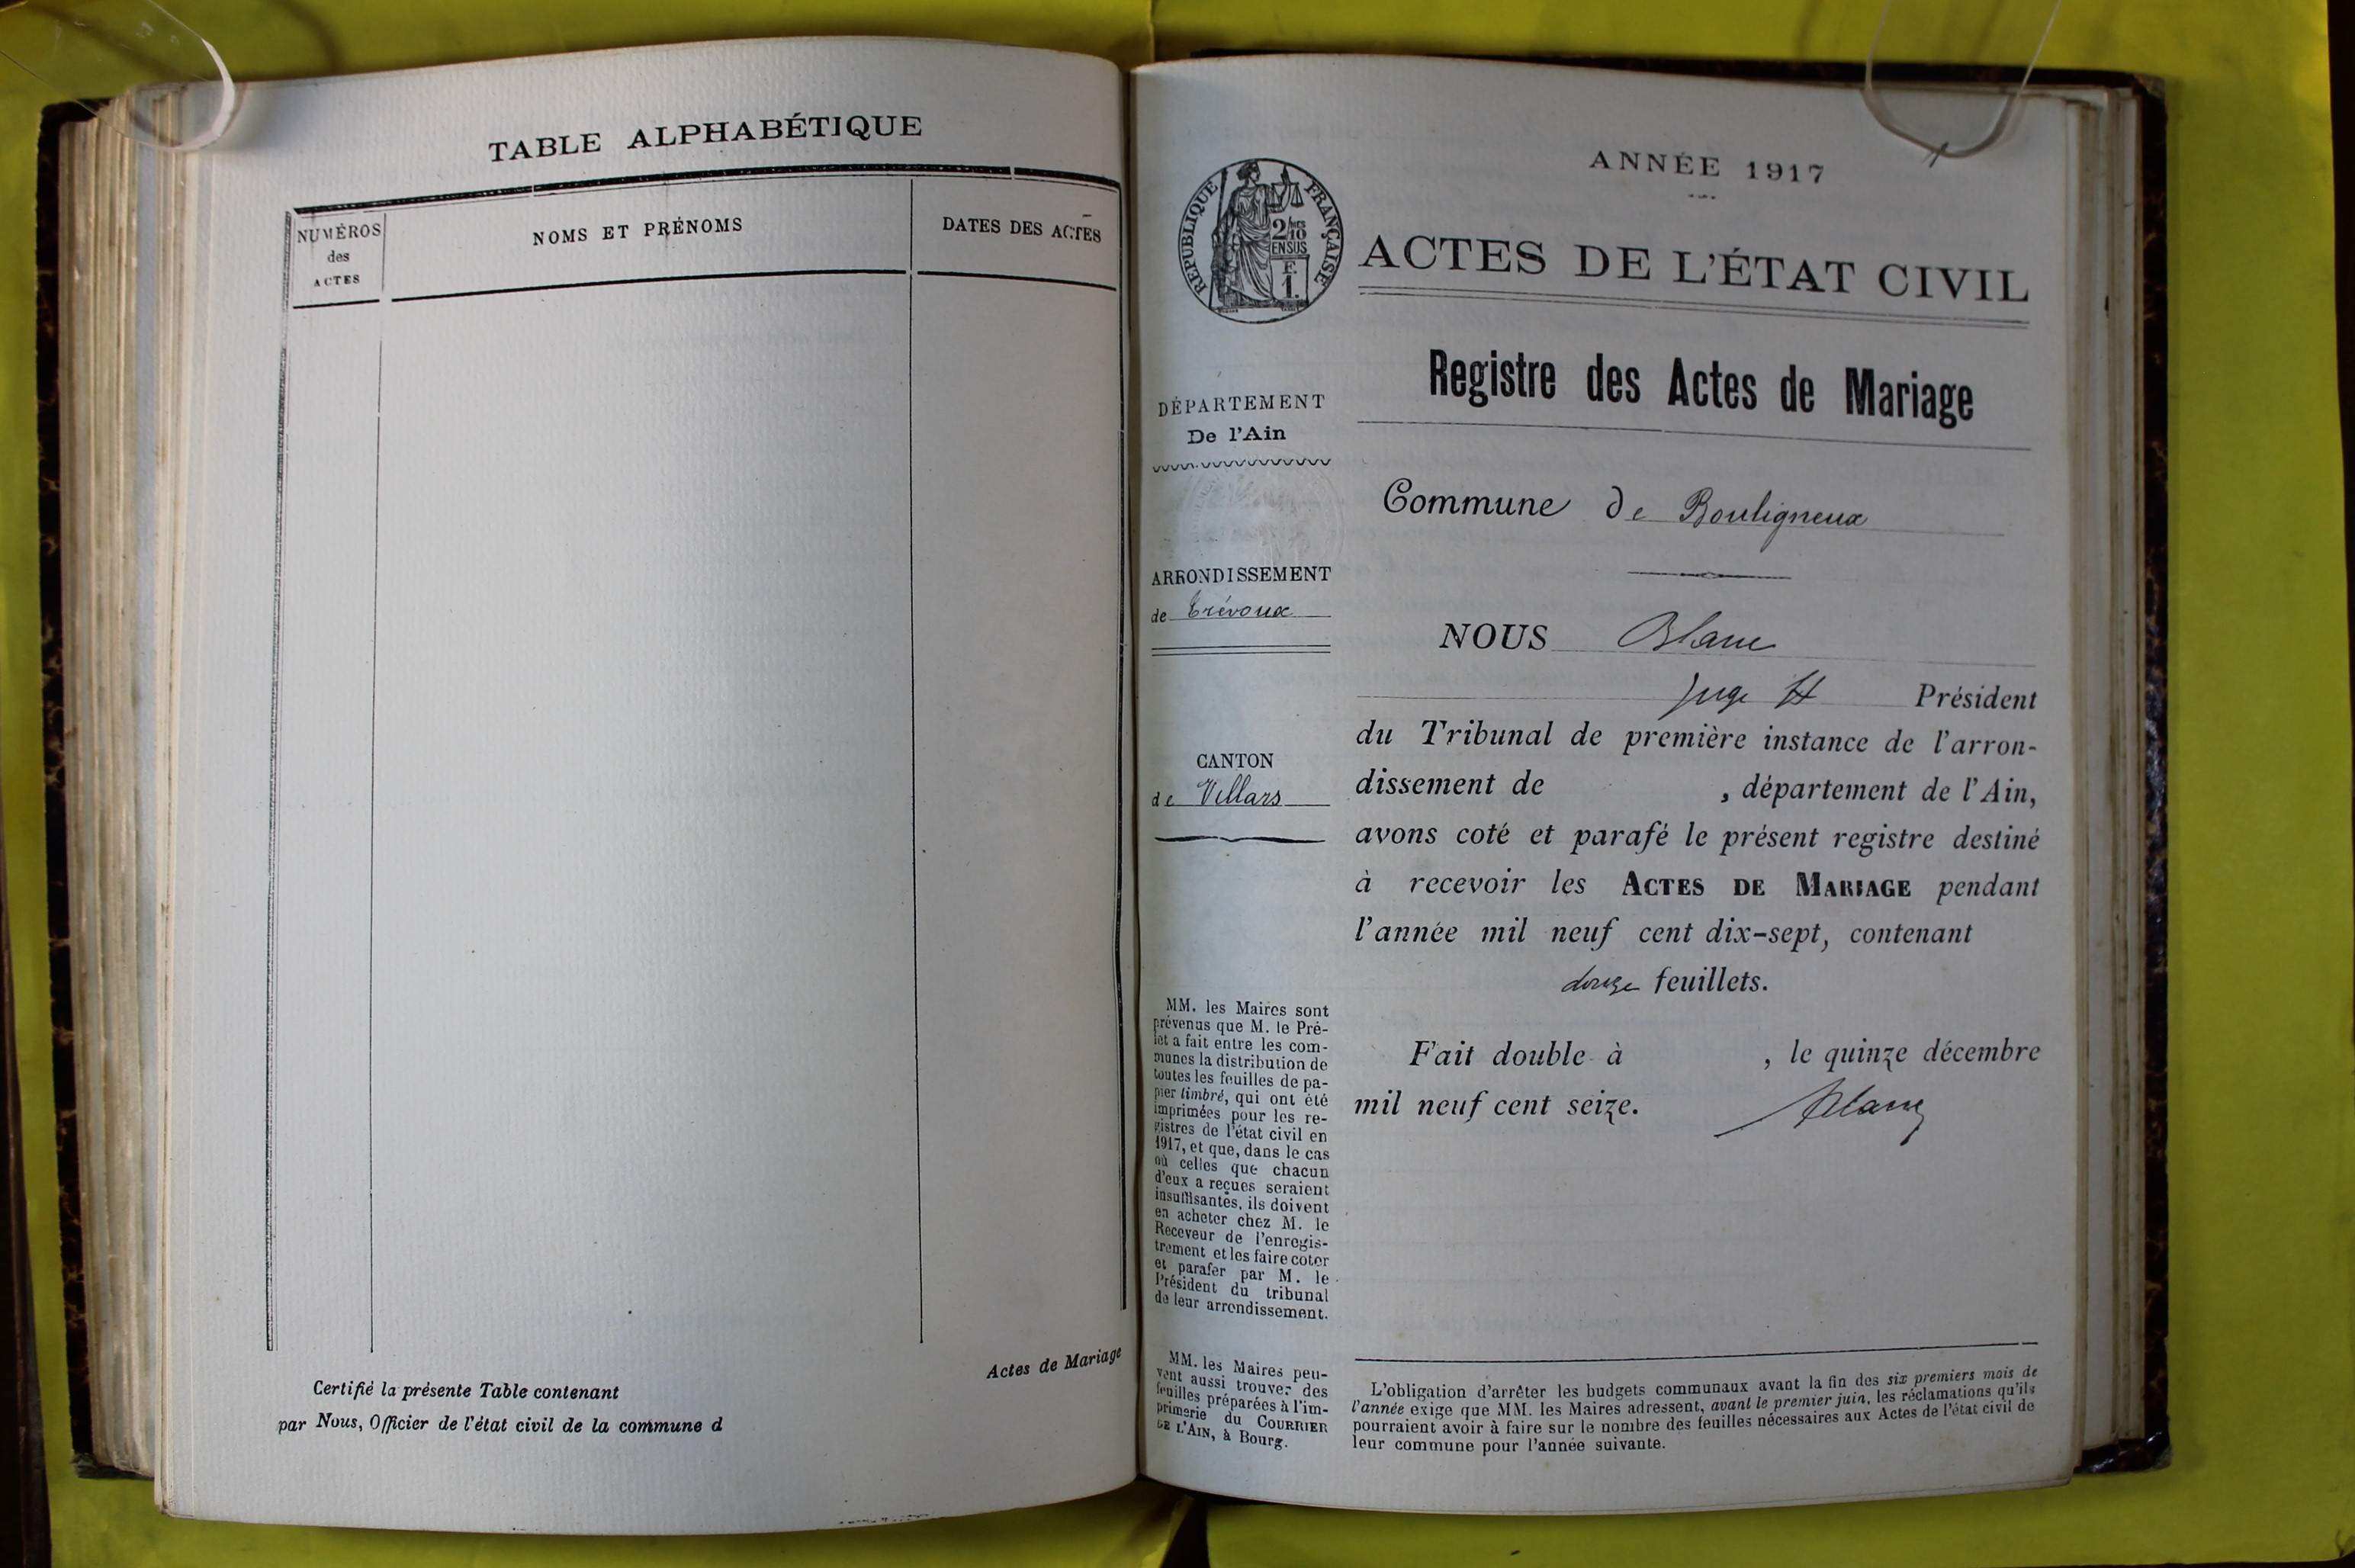 TABLE ALPHABÉTIQUE
NUMÉROS
des
ACTES
NOMS ET PRÉNOMS
DATES DES ACTES
Actes de Mariage
Certifié la présente Table contenant
par Nous, Officier de l'état civil de la commune d
ANNÉE 1917
RÉPUBLIQUE FRANÇAISE
2/10
EN SUS
F.
1.
ACTES DE L'ÉTAT CIVIL
Registre des Actes de Mariage
DÉPARTEMENT
De l'Ain
Commune de Bouligneux
ARRONDISSEMENT
de Trévoux
NOUS Blanc
Juge Président
du Tribunal de première instance de l'arron-
dissement de , département de l'Ain,
avons coté et parafé le présent registre destiné
à recevoir les ACTES DE MARIAGE pendant
l'année mil neuf cent dix-sept, contenant
douze feuillets.
Fait double à , le quinze décembre
mil neuf cent seize. Blanc
CANTON
de Villars
MM. les Maires sont
prévenus que M. le Pré-
fet a fait entre les com-
munes la distribution de
toutes les feuilles de pa-
pier timbré, qui ont été
imprimées pour les re-
gistres de l'état civil en
1917, et que, dans le cas
où celles que chacun
d'eux a reçues seraient
insuffisantes, ils doivent
en acheter chez M. le
Receveur de l'enregis-
trement et les faire coter
et parafer par M. le
Président du tribunal
de leur arrondissement.
MM. les Maires peu-
vent aussi trouver des
feuilles préparées à l'im-
primerie du COURRIER
DE L'AIN, à Bourg.
L'obligation d'arrêter les budgets communaux avant la fin des six premiers mois de
l'année exige que MM. les Maires adressent, avant le premier juin, les réclamations qu'ils
pourraient avoir à faire sur le nombre des feuilles nécessaires aux Actes de l'état civil de
leur commune pour l'année suivante.